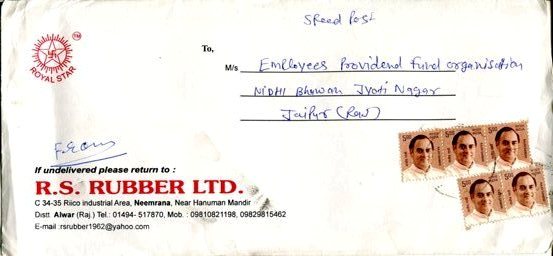 Speed Post
TM
ROYAL STAR
To,
M/s Employees Providend Fund organisation
NIDHI Bhawan Jyoti Nagar
Jaipur (Raw)
From
If undelivered please return to :
R.S. RUBBER LTD.
C 34-35 Riico industrial Area, Neemrana, Near Hanuman Mandir
Distt Alwar (Raj.) Tel.: 01494- 517870, Mob. : 09810821198, 09829815462
E-mail :rsrubber1962@yahoo.com